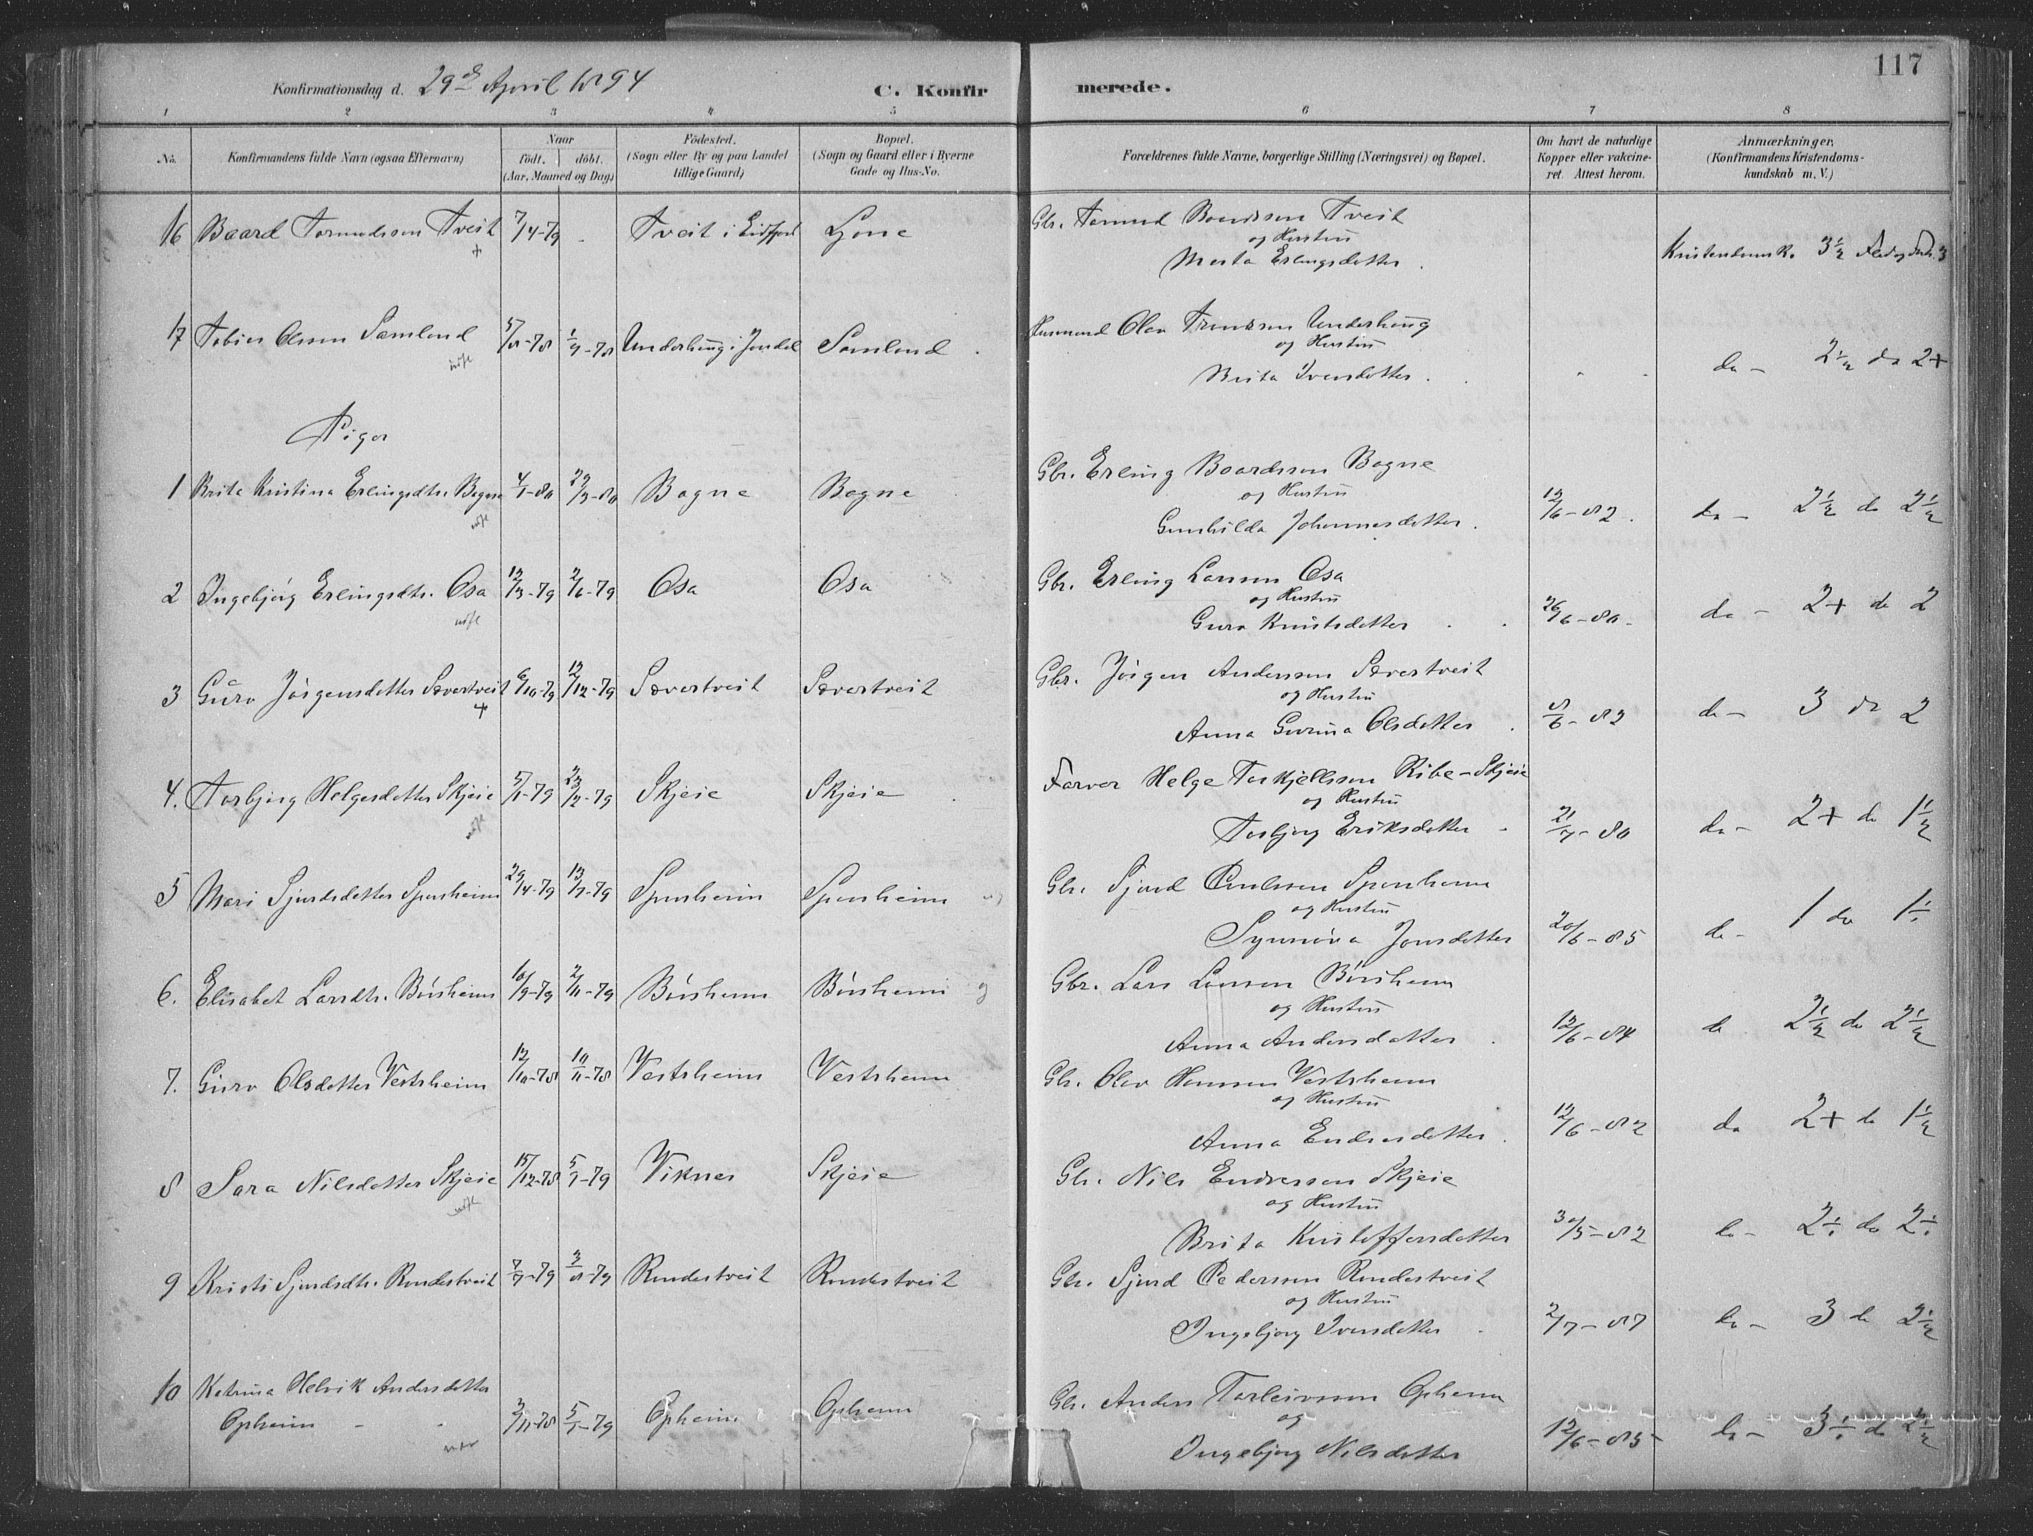 117
Konfirmationsdag d. 29de April 1894 C. Konfirmerede.
1 2 3 4 5 6 7 8
No.
Konfirmandens fulde Navn (ogsaa Efternavn)
Naar
födt. döbt.
(Aar, Maaned og Dag)
Födested.
(Sogn eller By og paa Landet
tillige Gaard)
Bopæl.
(Sogn og Gaard eller i Byerne
Gade og Hus-No.
Forældrenes fulde Navne, borgerlige Stilling (Næringsvei) og Bopæl.
Om havt de naturlige
Kopper eller vakcine-
ret. Attest herom.
Anmærkninger.
(Konfirmandens Kristendoms-
kundskab m. V.)
16 Baard Tormodsson Tveit 7/4-79 Tveit i Eidfjord Ljone Gbr. Tormod Baardsson Tveit
og Hustru
Marta Erlingsdotter.
Kristendomsk. 3½ 3
17 Tobias Olsson Samland 5/8-78 1/9-78 Underhaug i Jondal Samland Husmand Olav Underhaug
og Hustru
Brita Ivarsdotter.
do - 2½ do 2+
Piger
1 Brita Kristina Erlingsdtr. Bagne 4/1-80 29/3-80 Bagne Bagne Gbr. Erling Baardsson Bagne
og Hustru
Gunhilda Johannesdotter.
12/6-82. do - 2½ do 2½
2 Ingebjörg Erlingsdtr. Osa 12/3-79 2/6-79 Osa Osa Gbr. Erling Larsson Osa
og Hustru
Guro Knutsdotter
26/6-80. do - 2+ do 2
3 Guro Jörgensdotter Sævartveit 6/10-79 12/12-79 Sævartveit Sævartveit Gbr. Jörgen Andersson Sævartveit
og Hustru
Anna Gurina Olsdotter.
8/6-83 do - 3 do 2
4. Torbjörg Helgesdotter Skjeie 5/1-79 23/2-79 Skjeie Skjeie Farver Helge Torkjellsson Ribe-Skjeie
og Hustru
Torbjörg Eriksdotter
21/7-80 do - 2+ do 1½
5 Mari Sjurdsdotter Sponheim 29/4-79 13/7-79 Sponheim Sponheim Gbr. Sjurd Paulsson Sponheim
og Hustru
Synnöva Jonsdotter
20/6-85 do - 1 do 1÷
6. Elisabet Larsdtr. Börsheim 10/9-79 2/11-79 Börsheim Börsheim Gbr. Lars Larsson Börsheim
og Hustru
Anna Andersdotter
12/6-84 do 2½ do 2½
7. Guro Olsdotter Vestrheim 12/10-78 10/11-78 Vestrheim Vestrheim Gbr. Olav Hansson Vestrheim
og Hustru
Anna Endresdotter.
12/6-82 do 2+ do 1½
8 Sara Nilsdotter Skjeie 15/12-78 5/1-79 Viknes Skjeie Gbr. Nils Endresson Skjeie
og Hustru
Brita Kristoffersdotter
30/5-82 do - 2÷ do 2÷
9 Kristi Sjurdsdtr. Rondestveit 7/7-79 3/8-79 Rondestveit Rondestveit Gbr. Sjurd Pedersson Rondestveit
og Hustru
Ingebjörg Ivarsdotter
2/7-87 do - 3 do 2½
10 Katrina Helvik Andersdotter
Opheim 3/11-78 5/1-79 Opheim Opheim Gbr. Anders Torleivsson Opheim
og
Ingebjörg Nilsdotter
12/6-85- do - 3÷ do 2½